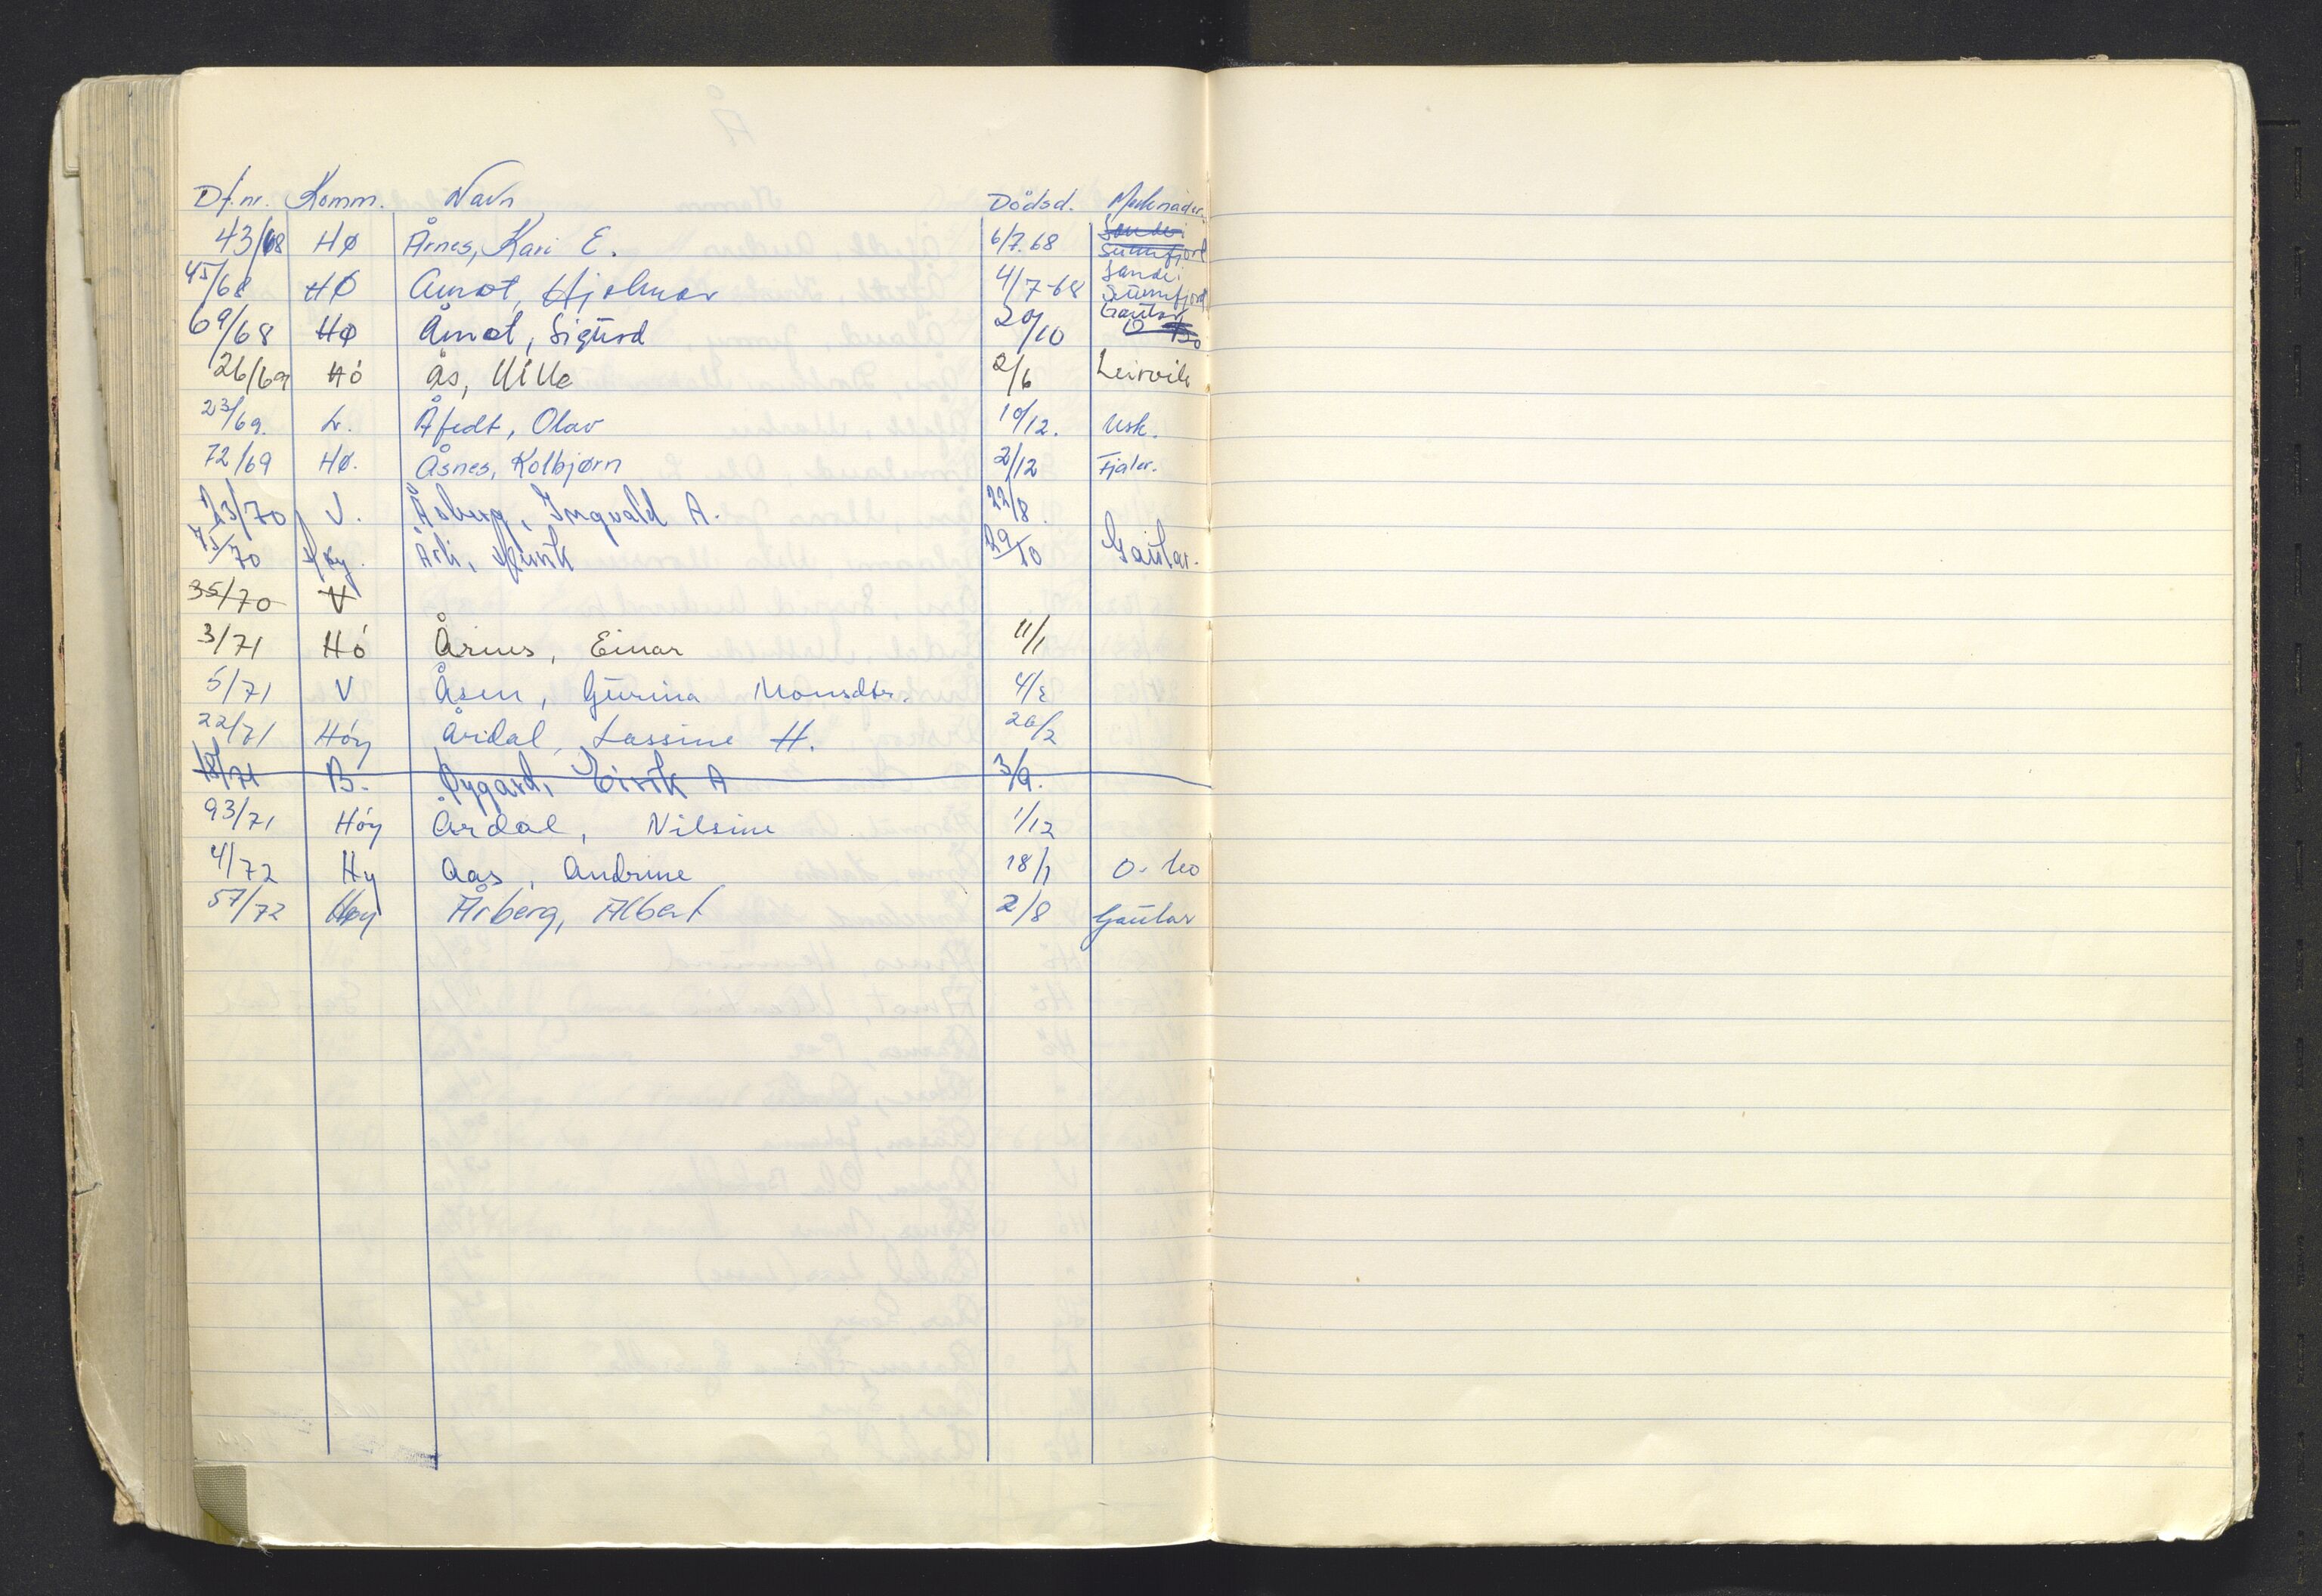 Df.nr. Komm. Navn Dödsd. Merknader.
43/68 HØ Årnes, Kari E. 6/7.68 Sunnfjord
45/68 HØ Åmot, Hjalmar 4/7-68 Sande i Sunnfjord
69/68 HØ Åmot, Sigurd 20/10 Gaular
26/69 Hó Ås, Mille 2/6 Leirvik
23/69. L. Åfedt, Olav 10/12. Ask.
72/69 HØ. Åsnes, Kolbjørn 2/12 Fjaler.
23/70 V. Åsberg, Ingvald A. 22/8.
75/70 Høy. Årli, 29/10 Gaular.
35/70 V
3/71 Hó Årnes, Einar 11/1
5/71 V Åsen, Gurina Monsdtr. 4/2
22/71 Höy Årdal, Lassine H. 26/2
18/71 B. Øygard, Eirik A 3/9.
93/71 Höy Årdal, Nilsine 1/12
4/72 Hy Aas, Andrine 18/1 O.
57/72 Høy Årberg, Albert 2/8 Gaular